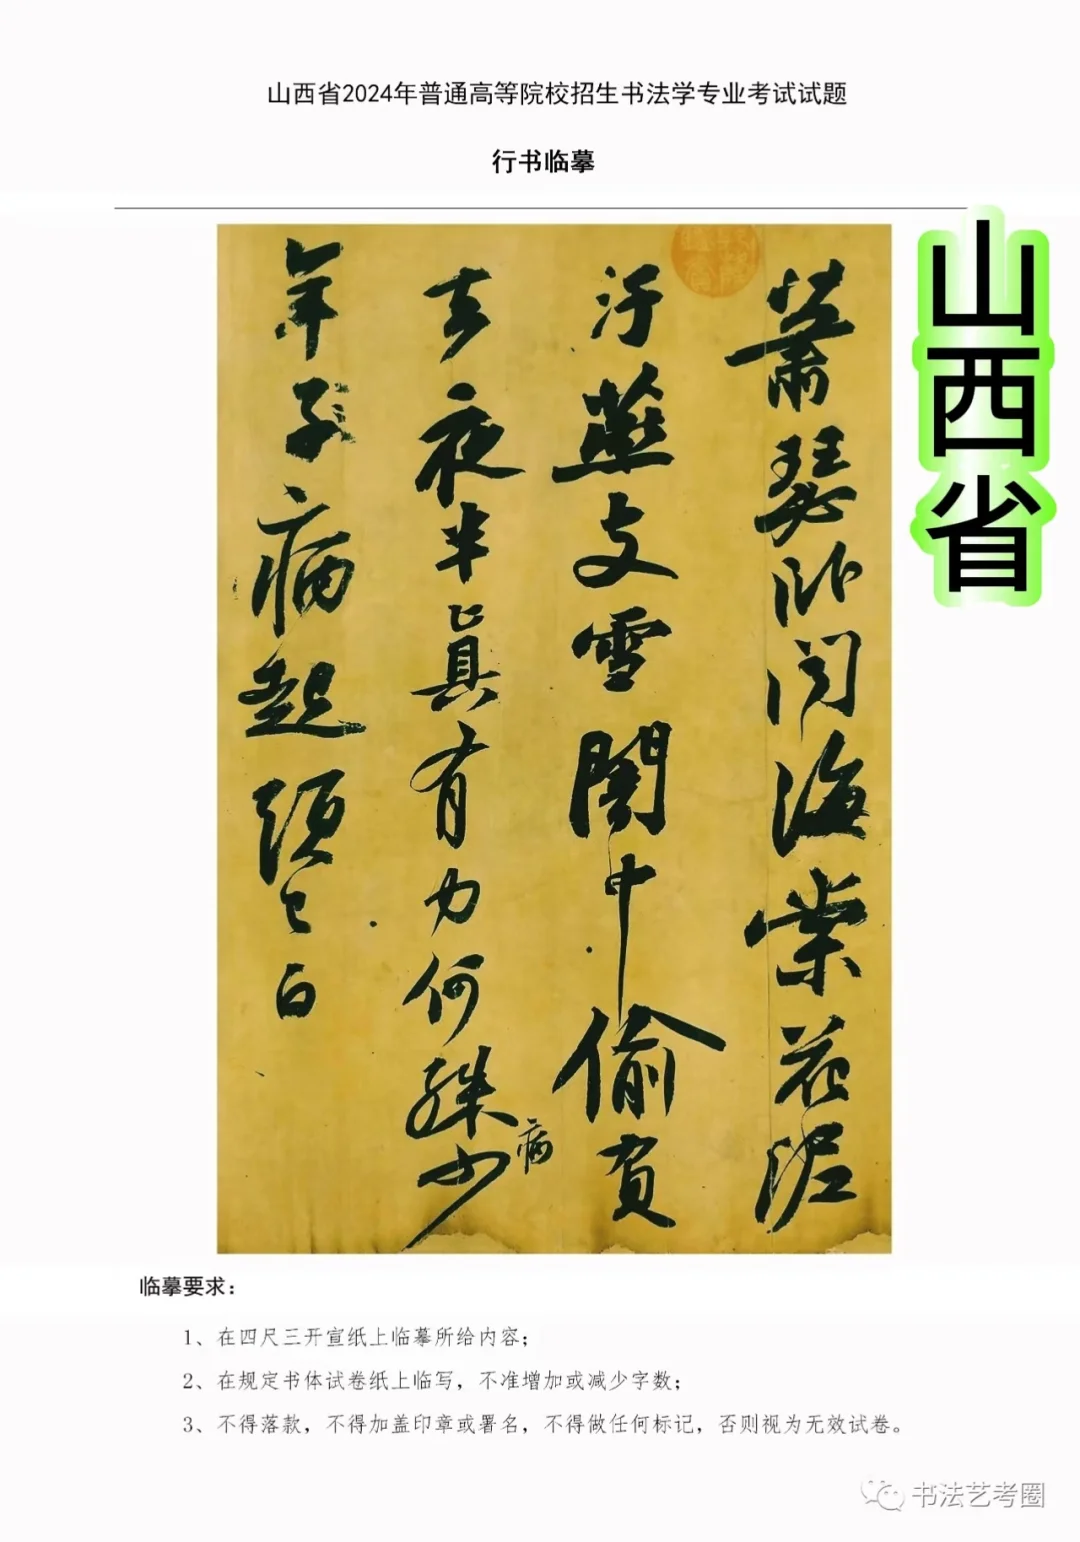 山西省2024年普通高等院校招生书法学专业考试试题
行书临摹
山西省
萧瑟卧闻海棠花泥
汙燕支雪闇中偷負
去夜半真有力何殊少
病
年子病起须已白
临摹要求：
1、在四尺三开宣纸上临摹所给内容；
2、在规定书体试卷纸上临写，不准增加或减少字数；
3、不得落款，不得加盖印章或署名，不得做任何标记，否则视为无效试卷。
书法艺考圈